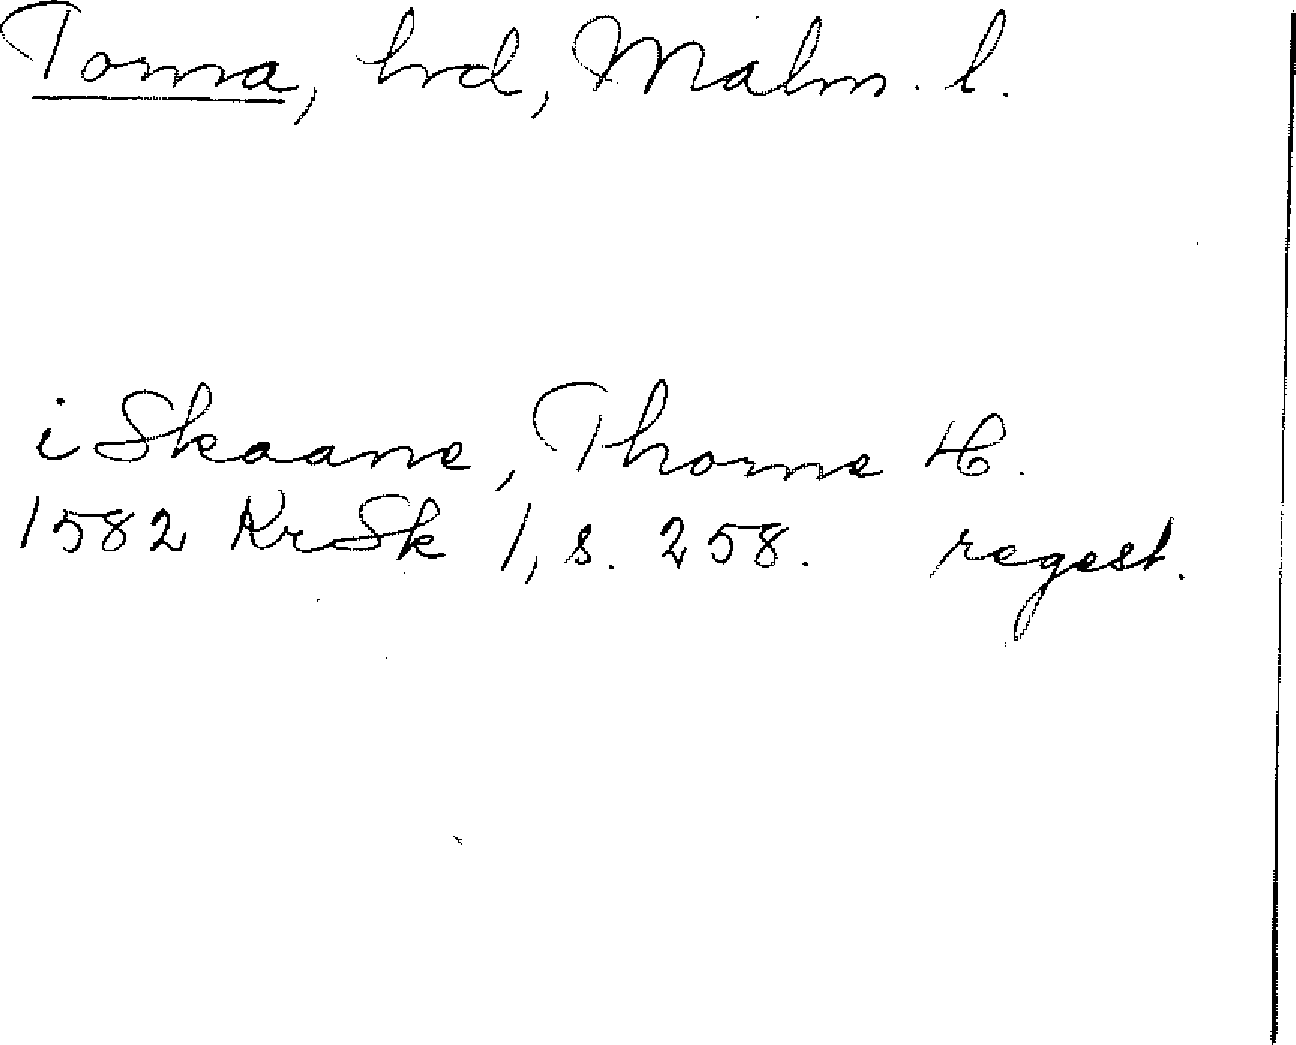 Torna, hrd, Malm. l.
i Skaane, Thorne H.
1582 KrSk 1, s. 258. regest.